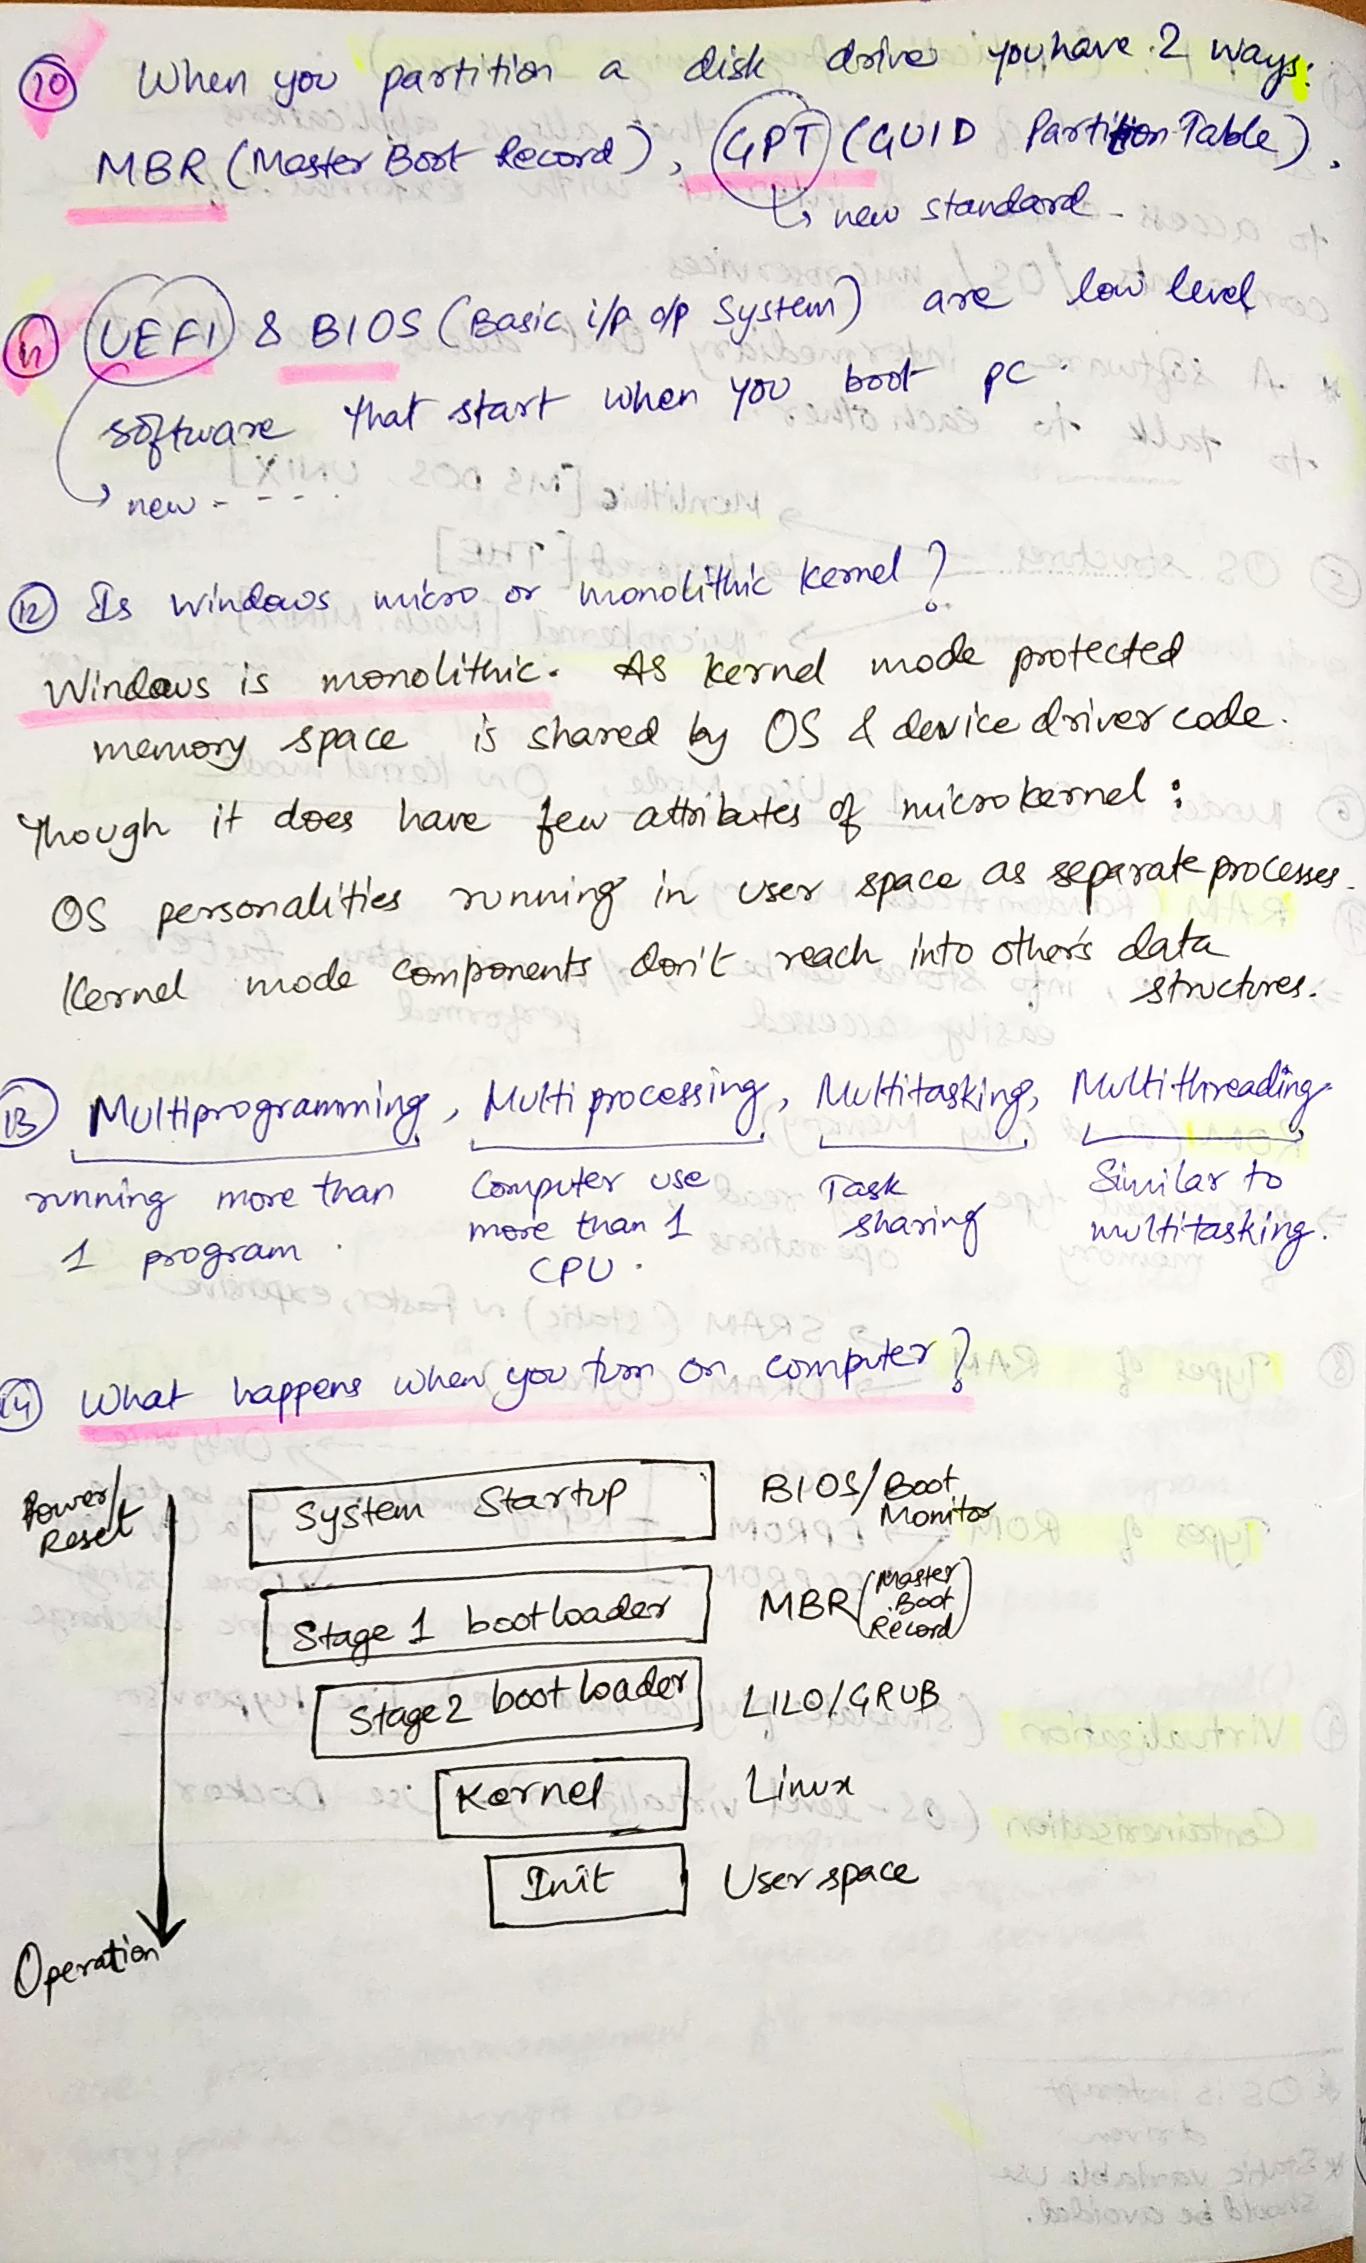 10 When you partition a disk drive you have 2 ways:
MBR (Master Boot Record), GPT (GUID Partition Table).
↳ new standard
11 UEFI & BIOS (Basic i/p o/p System) are low level
software that start when you boot PC.
→ new - - - -
12 Is windows micro or monolithic kernel?
Windows is monolithic. As kernel mode protected
memory space is shared by OS & device driver code.
Though it does have few attributes of microkernel:
OS personalities running in user space as separate processes.
Kernel mode components don't reach into other's data
structures.
13 Multiprogramming, Multiprocessing, Multitasking, Multithreading.
running more than Computer use Task Similar to
1 program. more than 1 sharing multitasking.
CPU.
14 What happens when you turn on computer?
Power/
Reset
System Startup BIOS/Boot
Monitor
Stage 1 bootloader MBR (Master
Boot
Record)
Stage 2 boot loader LILO/GRUB
Kernel Linux
Init User space
Operation